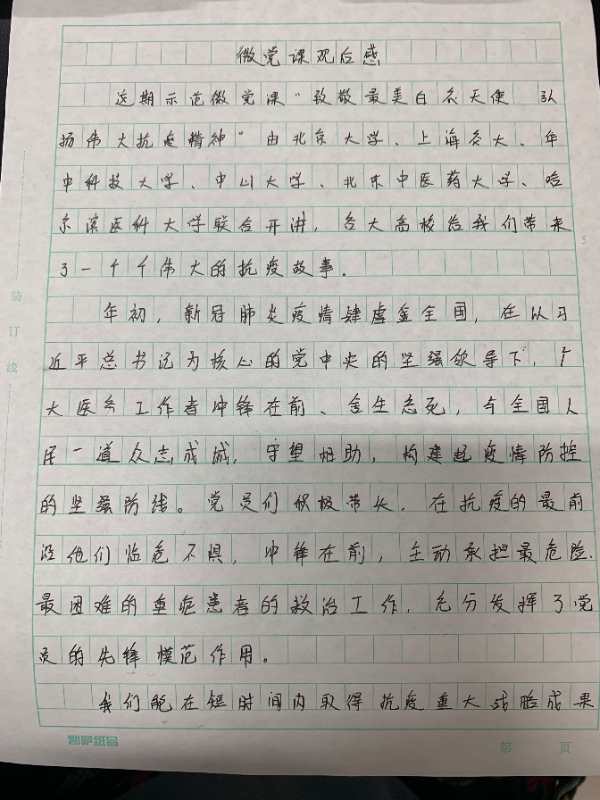 微党课观后感
近期示范微党课“致敬最美白衣天使 弘
扬伟大抗疫精神”由北京大学、上海交大、华
中科技大学、中山大学、北京中医药大学、哈
尔滨医科大学联合开讲，各大高校给我们带来
了一个个伟大的抗疫故事．
年初，新冠肺炎疫情肆虐全国，在以习
近平总书记为核心的党中央的坚强领导下，广
大医务工作者冲锋在前、舍生忘死，与全国人
民一道众志成城，守望相助，构建起疫情防控
的坚强防线。党员们积极带头，在抗疫的最前
沿他们临危不惧，冲锋在前，主动承担最危险、
最困难的重症患者的救治工作，充分发挥了党
员的先锋模范作用。
我们能在短时间内取得抗疫重大战略成果
装订线
第 页